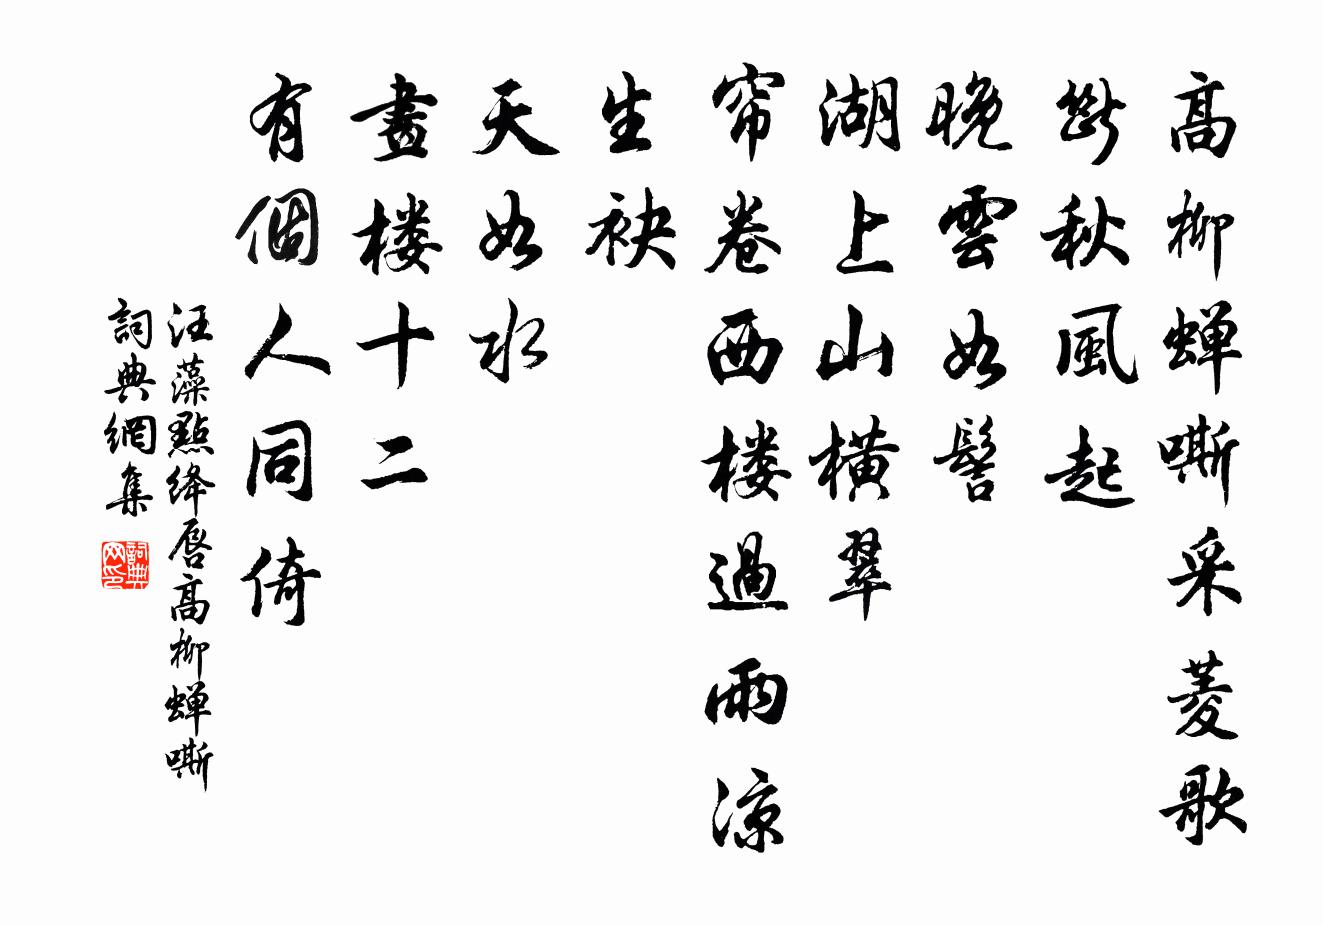 高柳蝉嘶采菱歌
斷秋風起
晚雲如髻
湖上山横翠
帘卷西楼過雨涼
生袂
天如水
畫楼十二
有個人同倚
汪藻點絳唇高柳蝉嘶
詞典網集
詞典网印